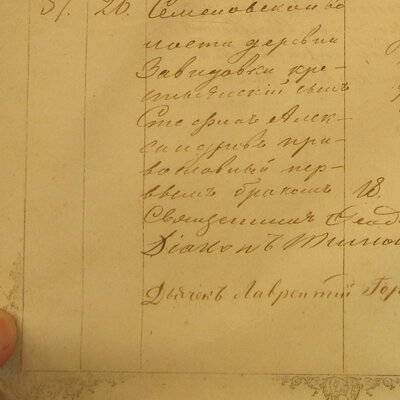 51. 20. Семеновской во
лости деревни
Завидовки кре-
стьянскій сынъ
Стефанъ Алек-
сандровъ пра-
вославный пер-
вымъ бракомъ 18.
Священникъ Ѳеод
Діаконъ
Дьячекъ Лаврентій Гор